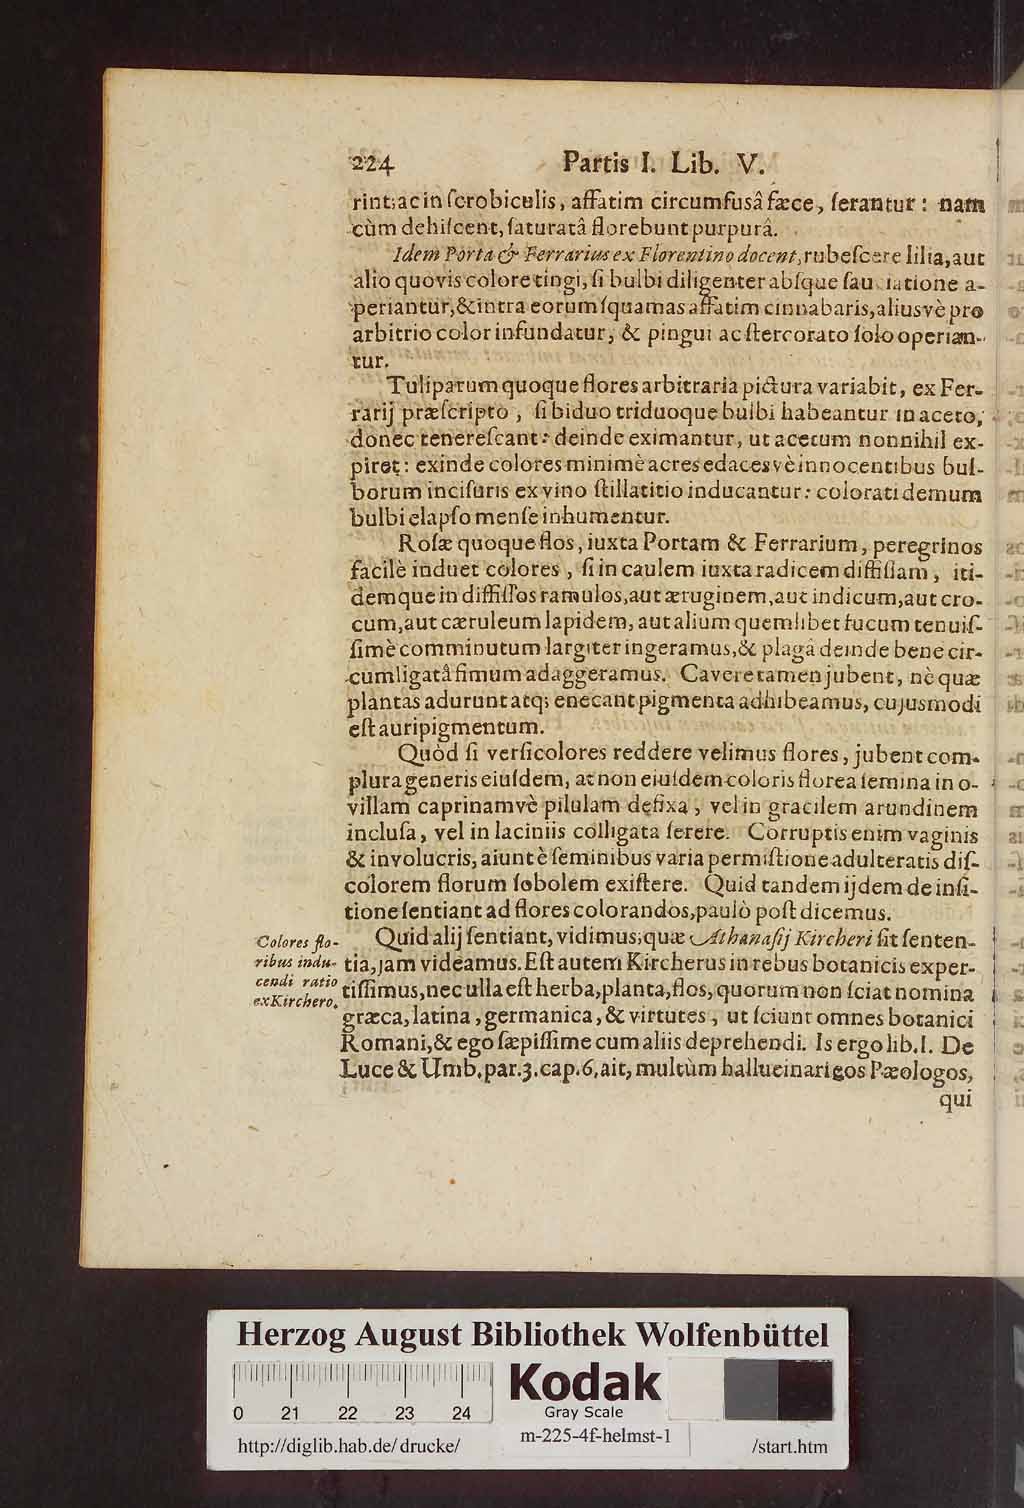 224 Partis I. Lib. V.
rint; ac in ſcrobiculis, affatim circumfusâ fæce, ſerantur: nam
cùm dehiſcent, ſaturatâ florebunt purpurâ.
Idem Porta & Ferrarius ex Florentino docent, rubeſcere lilia, aut
alio quovis colore tingi, ſi bulbi diligenter abſque ſauciatione a-
periantur, & intra eorum ſquamas affatim cinnabaris, aliusvè pro
arbitrio color infundatur, & pingui ac ſtercorato ſolo operian-
tur.
Tuliparum quoque flores arbitraria pictura variabit, ex Fer-
rarij præſcripto, ſi biduo triduoque bulbi habeantur in aceto,
donec tenereſcant: deinde eximantur, ut acetum nonnihil ex-
piret: exinde colores minimè acres edacesvè innocentibus bul-
borum inciſuris ex vino ſtillatitio inducantur: colorati demum
bulbi elapſo menſe inhumentur.
Roſæ quoque flos, iuxta Portam & Ferrarium, peregrinos
facilè induet colores, ſi in caulem iuxta radicem diffiſſam, iti-
demque in diffiſſos ramulos, aut æruginem, aut indicum, aut cro-
cum, aut cæruleum lapidem, aut alium quemlibet fucum tenuiſ-
ſimè comminutum largiter ingeramus, & plagâ deinde bene cir-
cumligatâ fimum adaggeramus. Cavere tamen jubent, nè quæ
plantas adurunt atq; enecant pigmenta adhibeamus, cujusmodi
eſt auripigmentum.
Quòd ſi verſicolores reddere velimus flores, jubent com-
plura generis eiuſdem, at non eiuſdem coloris florea ſemina in o-
villam caprinamvè pilulam defixa, vel in gracilem arundinem
incluſa, vel in laciniis colligata ſerere. Corruptis enim vaginis
& involucris, aiunt è ſeminibus varia permiſtione adulteratis diſ-
colorem florum ſobolem exiſtere. Quid tandem ijdem de inſi-
tione ſentiant ad flores colorandos, paulò poſt dicemus.
Colores flo-
ribus indu-
cendi ratio
ex Kirchero.
Quid alij ſentiant, vidimus; quæ Athanaſij Kircheri ſit ſenten-
tia, jam videamus. Eſt autem Kircherus in rebus botanicis exper-
tiſſimus, nec ulla eſt herba, planta, flos, quorum non ſciat nomina
græca, latina, germanica, & virtutes, ut ſciunt omnes botanici
Romani, & ego ſæpiſſime cum aliis deprehendi. Is ergo lib. I. De
Luce & Umb. par. 3. cap. 6. ait, multùm hallucinari eos Pæologos,
qui
Herzog August Bibliothek Wolfenbüttel
0 21 22 23 24
Kodak
Gray Scale
http://diglib.hab.de/drucke/ m-225-4f-helmst-1 /start.htm